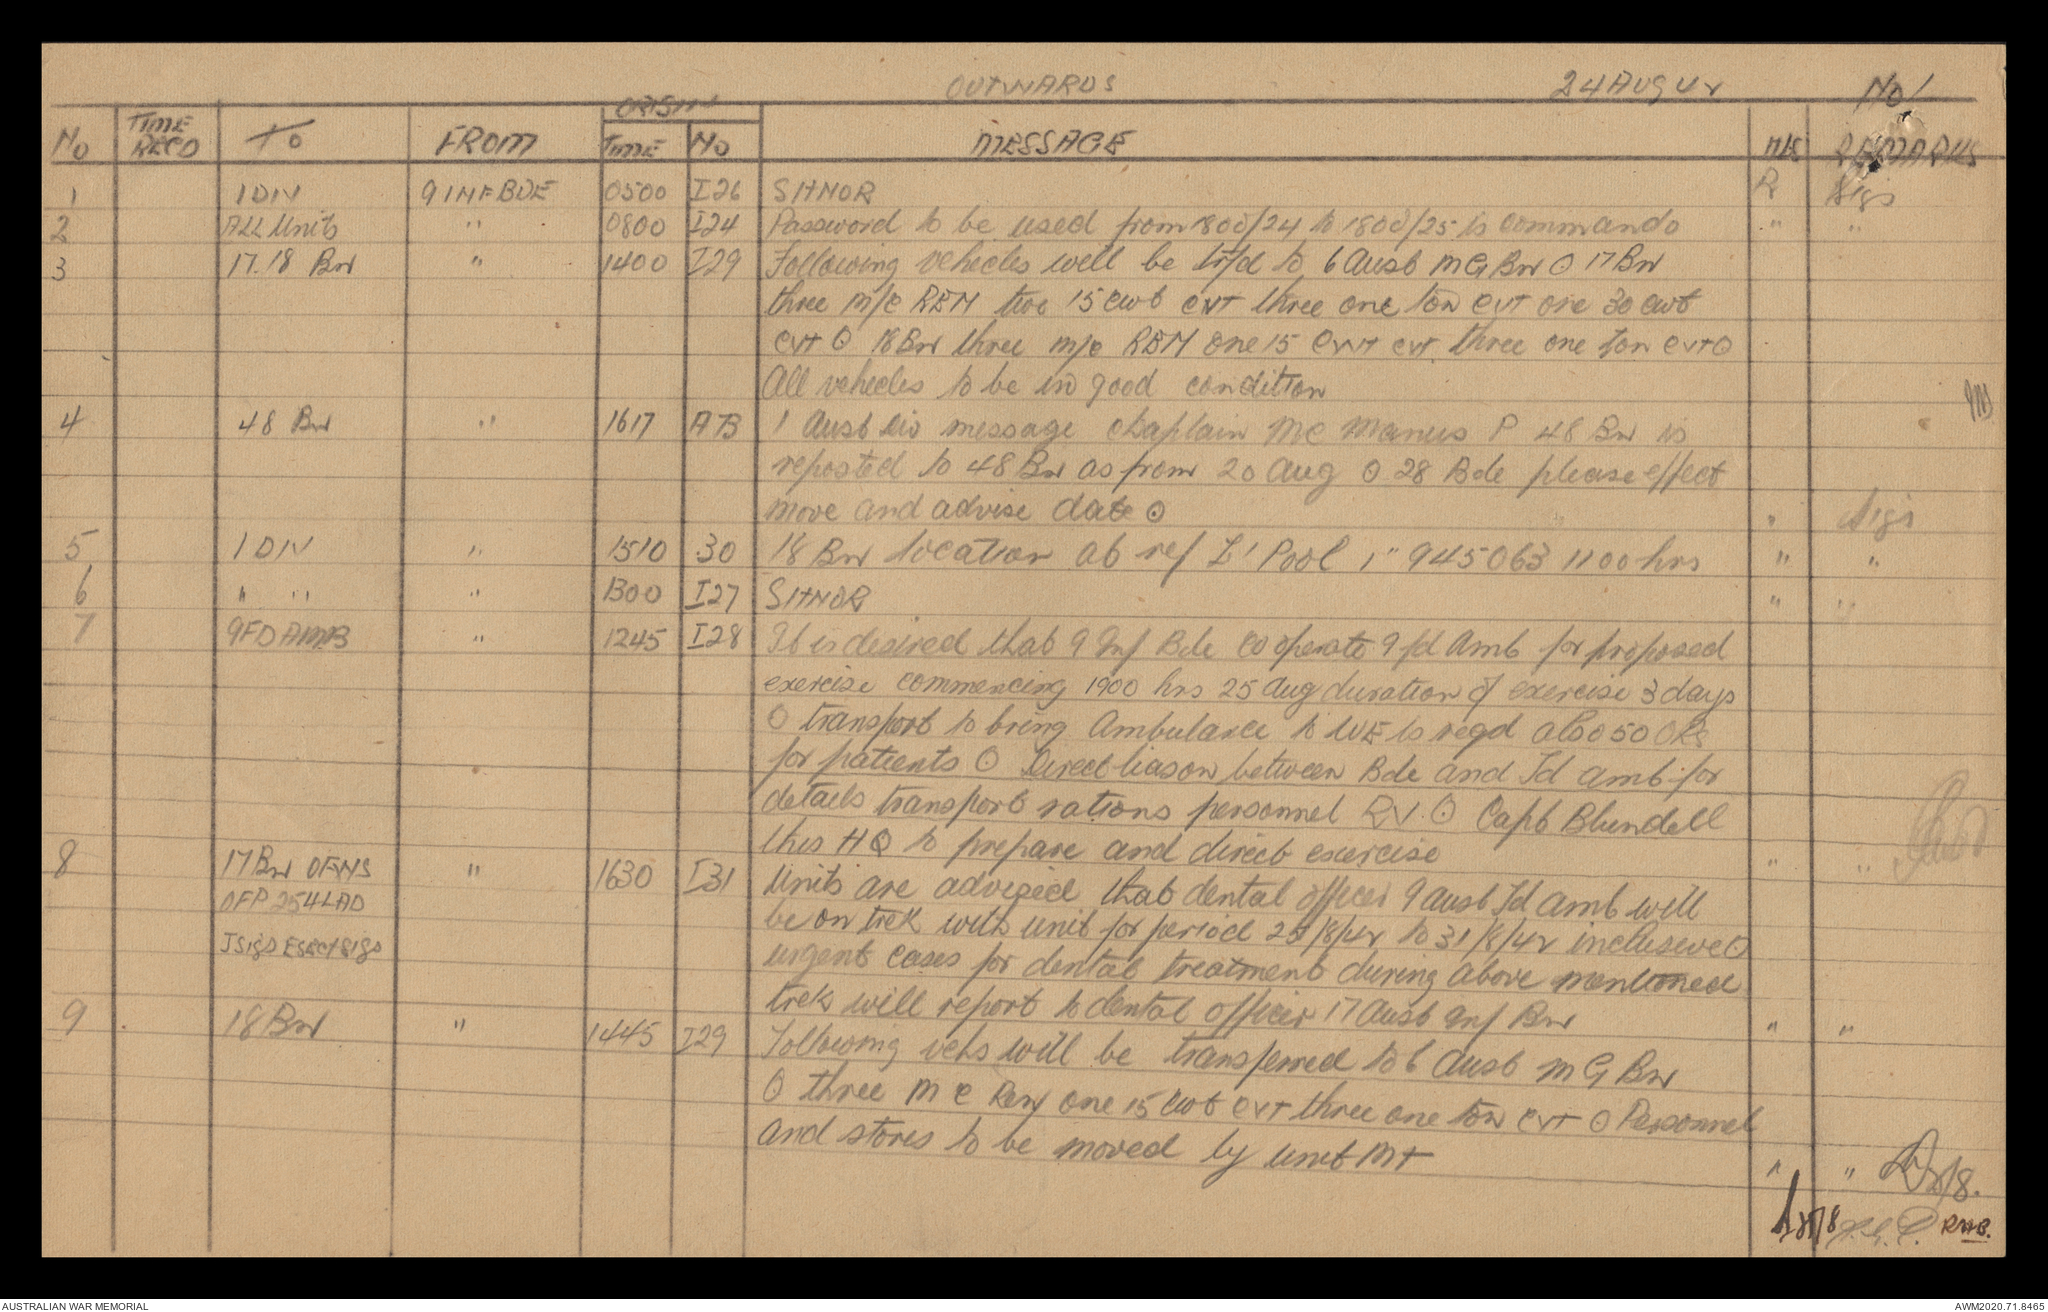 OUTWARDS 24 AUG 42 No 1
No TIME RECD TO FROM ORIGIN TIME No MESSAGE REMARKS
1 1 DIV 9 INF BDE 0500 I26 SITNOR R Sigs
2 ALL Units " 0800 I24 Password to be used from 1800/24 to 1800/25 is Commando " "
3 17.18 Bn " 1400 I29 Following vehicles will be trfd to 6 Aust MG Bn O 17 Bn
three m/c REM two 15 cwt CVT three one ton CVT one 30 cwt
CVT O 18 Bn three m/c REM one 15 cwt CVT three one ton CVT O
All vehicles to be in good condition
4 48 Bn " 1617 A73 1 Aust Div message Chaplain Mc Manus P 48 Bn is
reposted to 48 Bn as from 20 Aug O 28 Bde please effect
move and advise date O " Sigs
5 1 DIV " 1510 30 18 Bn location at ref L'Pool 1" 945063 1100 hrs " "
6 " " " 1300 I27 SITNOR " "
7 9 FD AMB " 1245 I28 It is desired that 9 Inf Bde cooperate 9 fd Amb for proposed
exercise commencing 1900 hrs 25 Aug duration of exercise 3 days
O transport to bring Ambulance to WE is reqd also 50 ORs
for patients O Direct liason between Bde and Fd amb for
details transport rations personnel RV. O Capt Blundell
this HQ to prepare and direct exercise " "
8 17 Bn " 1630 I31 Units are advised that dental officer 9 Aust Fd Amb will
OFP 254 LAD
be on trek with unit for period 25/8/42 to 31/8/42 inclusive O
J Sigs E Sect Sigs
urgent cases for dental treatment during above mentioned
trek will report to dental officer 17 Aust Inf Bn " "
9 18 Bn " 1445 I29 Following vehs will be transferred to 6 Aust M G Bn
O three M C Rem one 15 cwt CVT three one ton CVT O Personnel
and stores to be moved by unit MT " "
RHB.
AUSTRALIAN WAR MEMORIAL AWM2020.71.8465